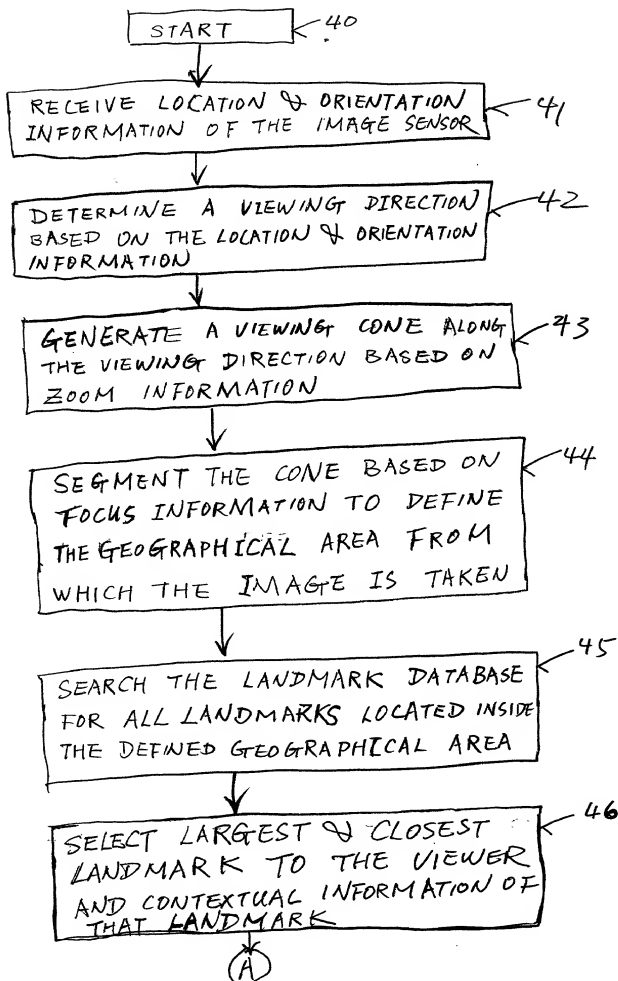 START
40
RECEIVE LOCATION & ORIENTATION
INFORMATION OF THE IMAGE SENSOR
41
DETERMINE A VIEWING DIRECTION
BASED ON THE LOCATION & ORIENTATION
INFORMATION
42
GENERATE A VIEWING CONE ALONG
THE VIEWING DIRECTION BASED ON
ZOOM INFORMATION
43
SEGMENT THE CONE BASED ON
FOCUS INFORMATION TO DEFINE
THE GEOGRAPHICAL AREA FROM
WHICH THE IMAGE IS TAKEN
44
SEARCH THE LANDMARK DATABASE
FOR ALL LANDMARKS LOCATED INSIDE
THE DEFINED GEOGRAPHICAL AREA
45
SELECT LARGEST & CLOSEST
LANDMARK TO THE VIEWER
AND CONTEXTUAL INFORMATION OF
THAT LANDMARK
46
A